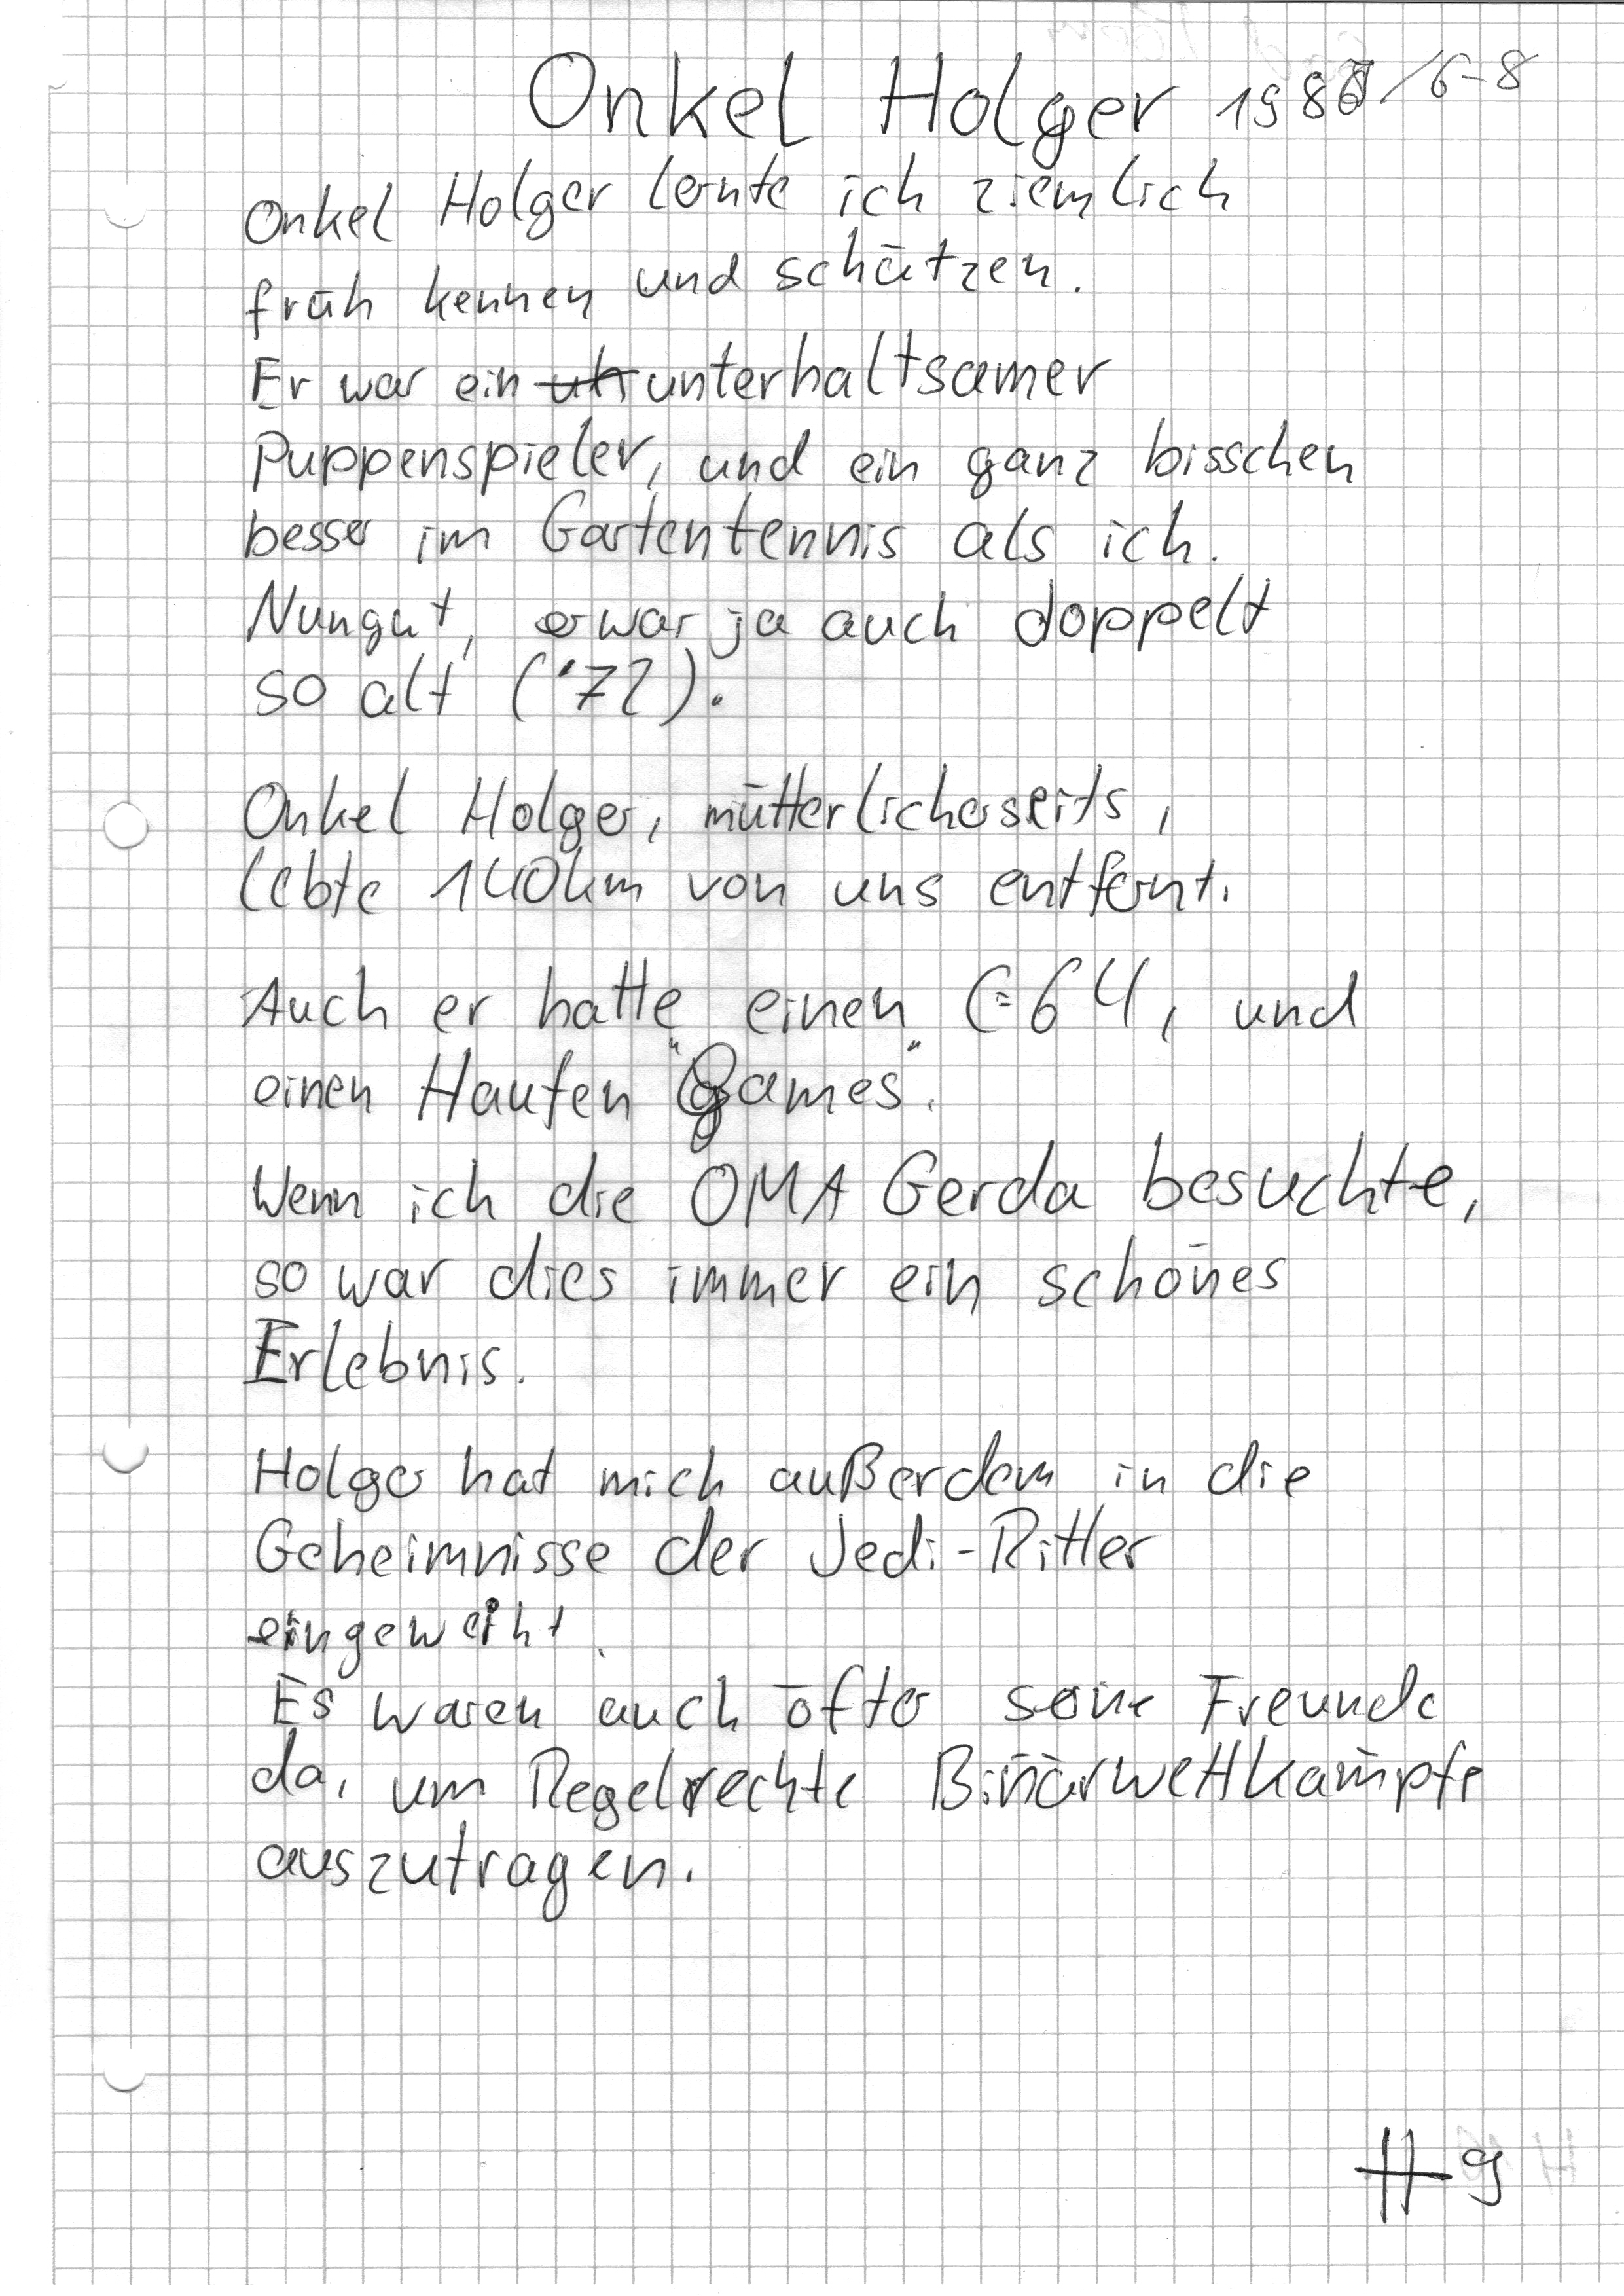 Onkel Holger 1986/6-8
Onkel Holger lernte ich ziemlich
früh kennen und schätzen.
Er war ein unterhaltsamer
Puppenspieler, und ein ganz bisschen
besser im Gartentennis als ich.
Nungut, er war ja auch doppelt
so alt ('72).
Onkel Holger, mütterlicherseits,
lebte 140km von uns entfernt.
Auch er hatte einen C=64, und
einen Haufen "Games".
Wenn ich die OMA Gerda besuchte,
so war dies immer ein schönes
Erlebnis.
Holger hat mich außerdem in die
Geheimnisse der Jedi-Ritter
eingeweiht.
Es waren auch öfter seine Freunde
da, um Regelrechte Binärwettkämpfe
auszutragen.
H9